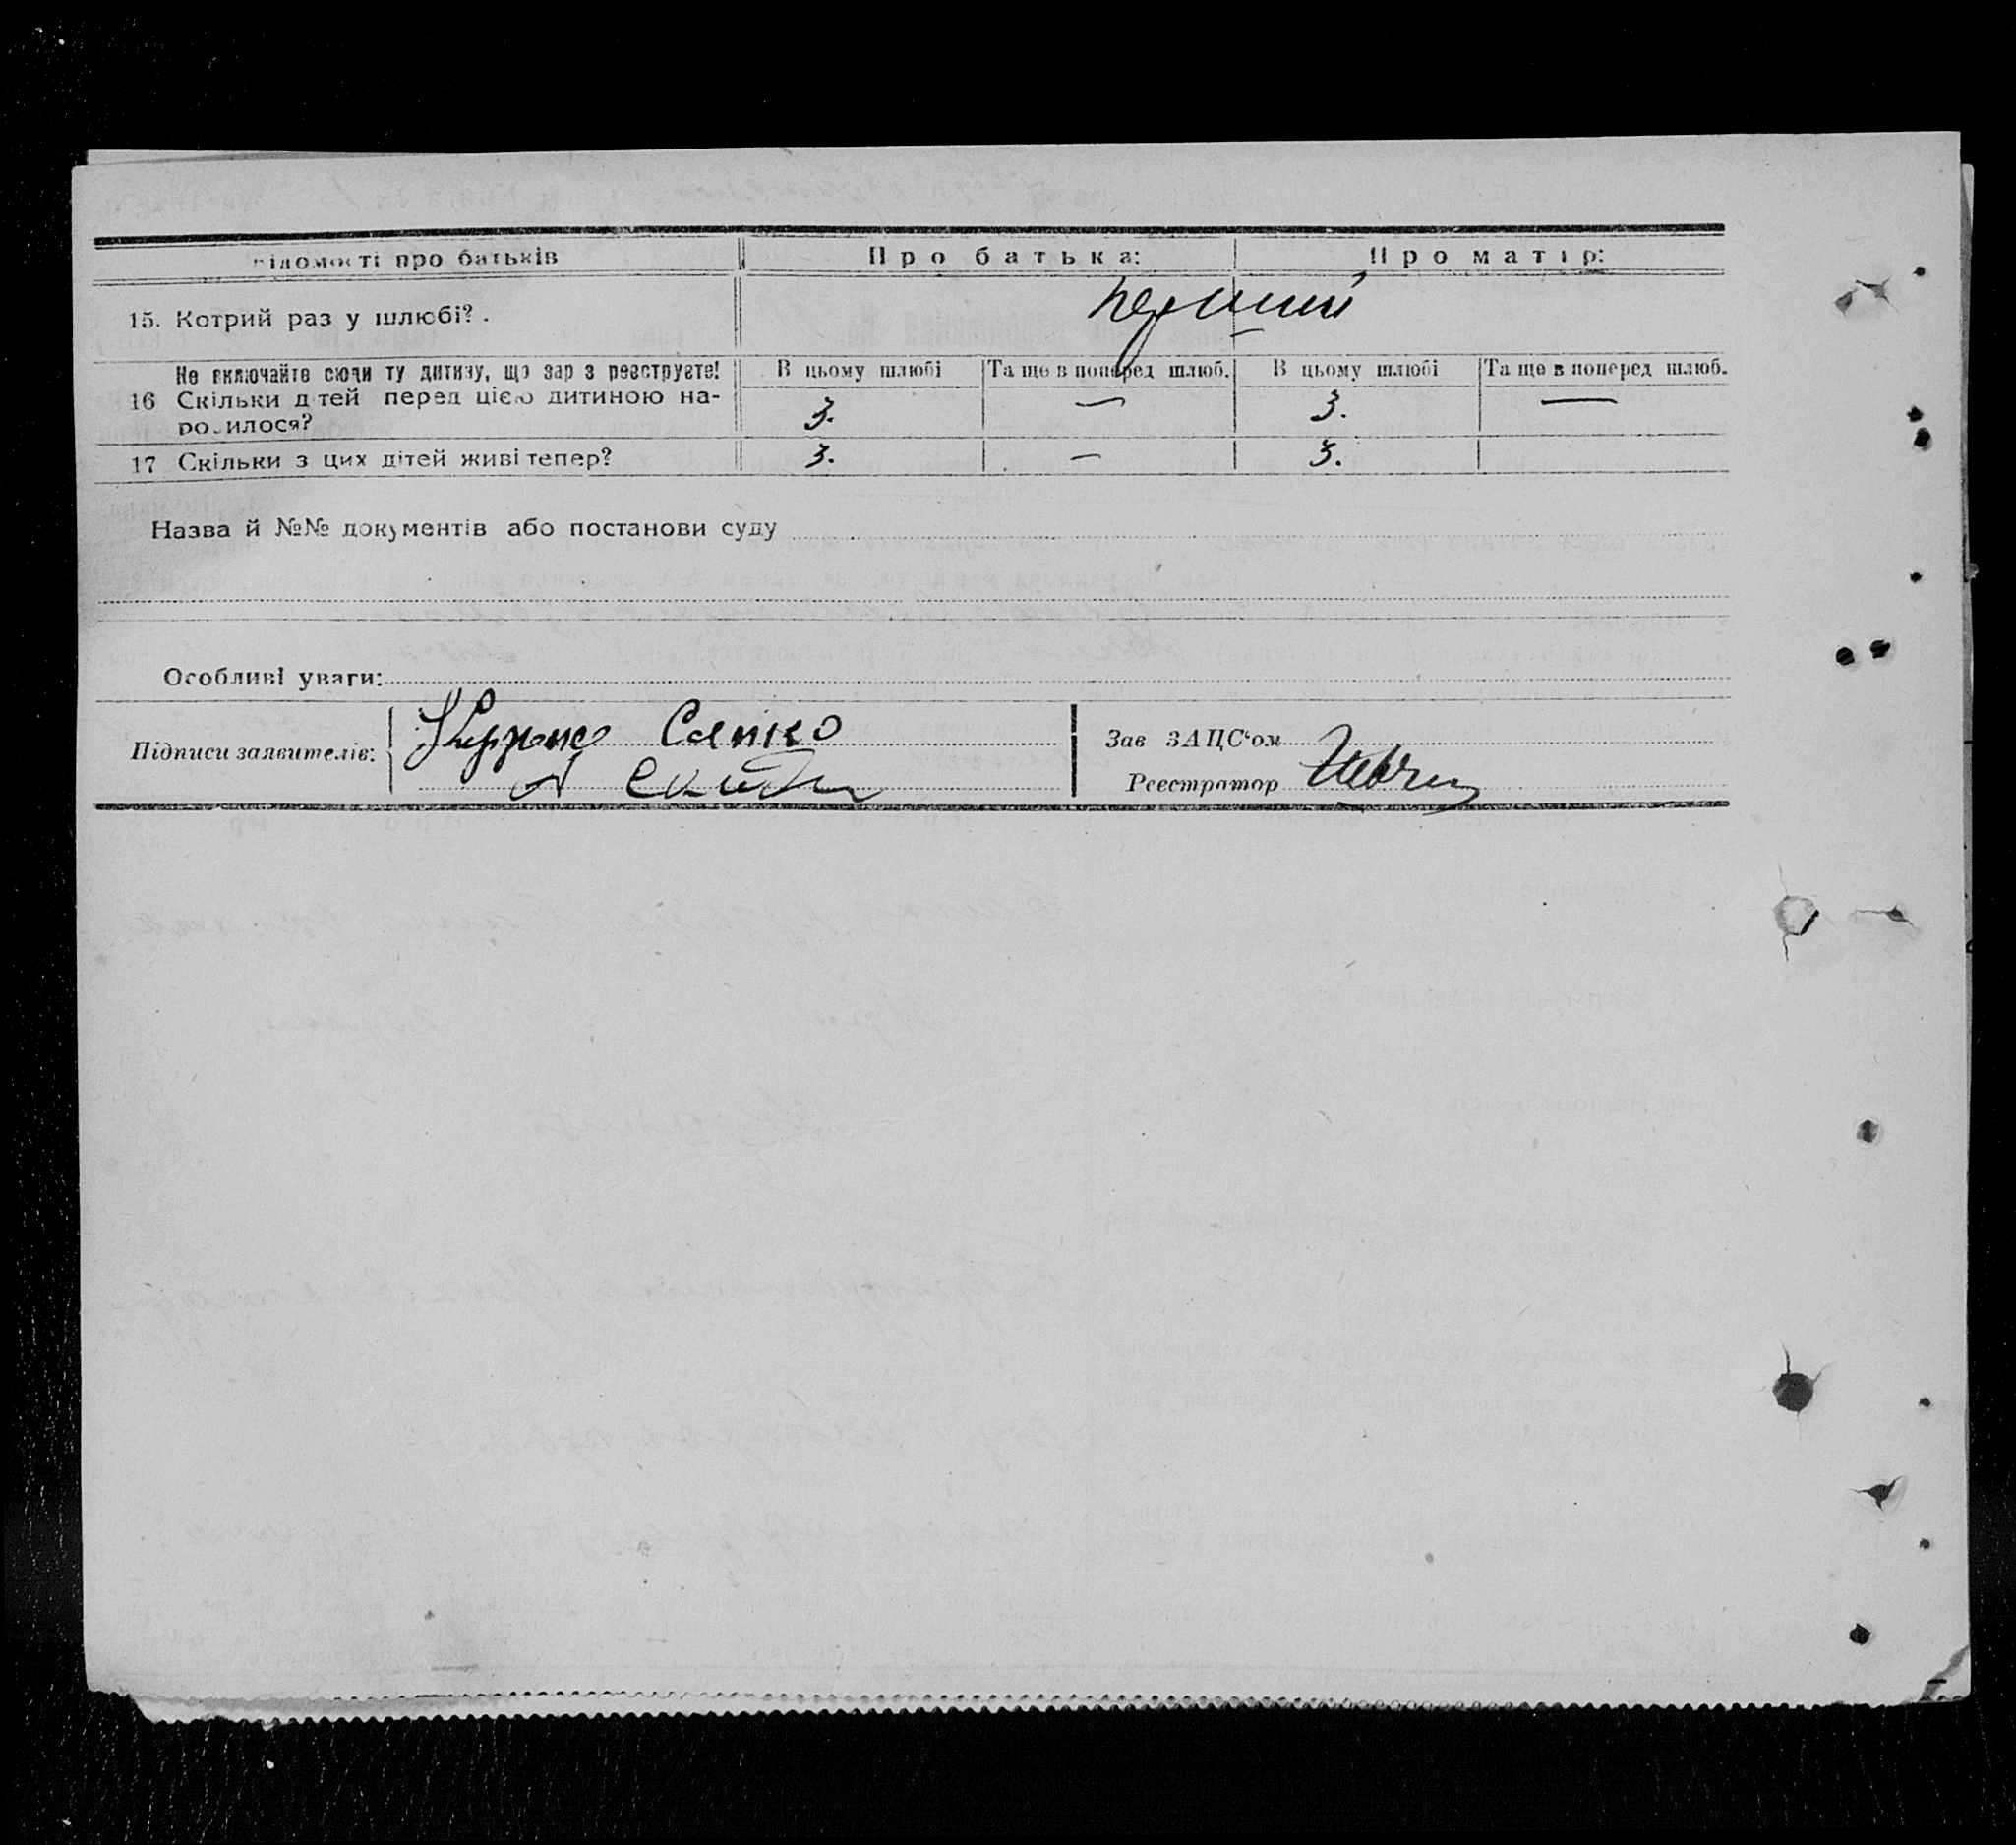 Відомості про батьків Про батька: Про матір:
15. Котрий раз у шлюбі? . перший
Не включайте сюди ту дитину, що зараз реєструєте! В цьому шлюбі Та ще в поперед шлюб. В цьому шлюбі Та ще в поперед шлюб.
16 Скільки дітей перед цією дитиною на-
родилося? 3. — 3. —
17 Скільки з цих дітей живі тепер? 3. — 3.
Назва й №№ документів або постанови суду
Особливі уваги:
Підписи заявителів: Сапко
Зав ЗАЦС‘ом
Реєстратор